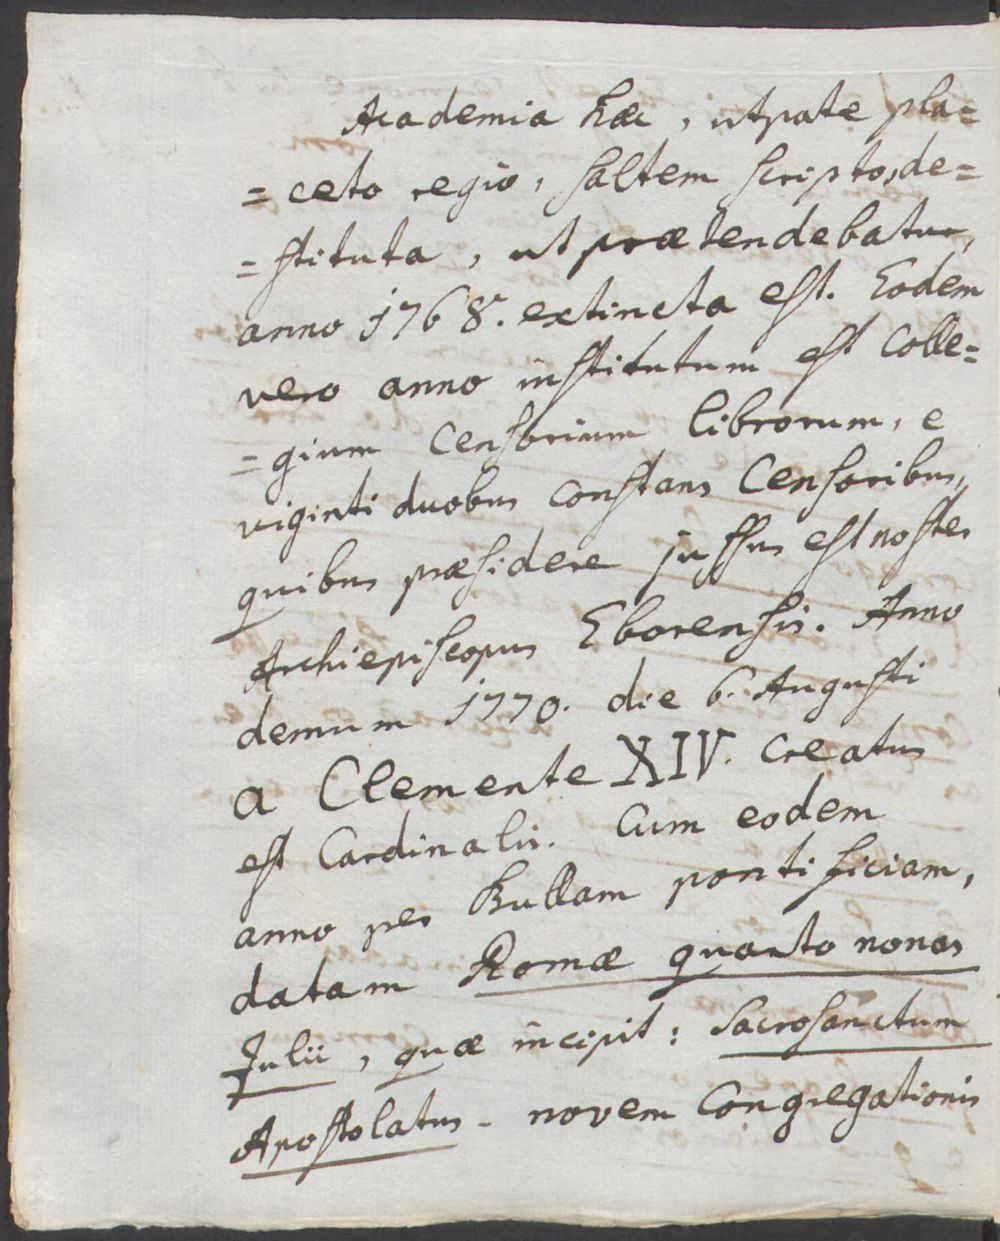 Academia hæc, utpote pla=
=ceto regio, saltem scripto, de=
=stituta, ut prætendebatur,
anno 1768. extincta est. Eodem
vero anno institutum est Colle=
=gium Censorium librorum, e
viginti duobus constans Censoribus,
quibus præsidere jussus est noster
Archiepiscopus Eborensis. Anno
demum 1770. die 6. Augusti
a Clemente XIV. creatus
est Cardinalis. Cum eodem
anno per Bullam pontificiam,
datam Romæ quarto nonas
Julii, quæ incipit: Sacrosanctum
Apostolatus - novem Congregationis